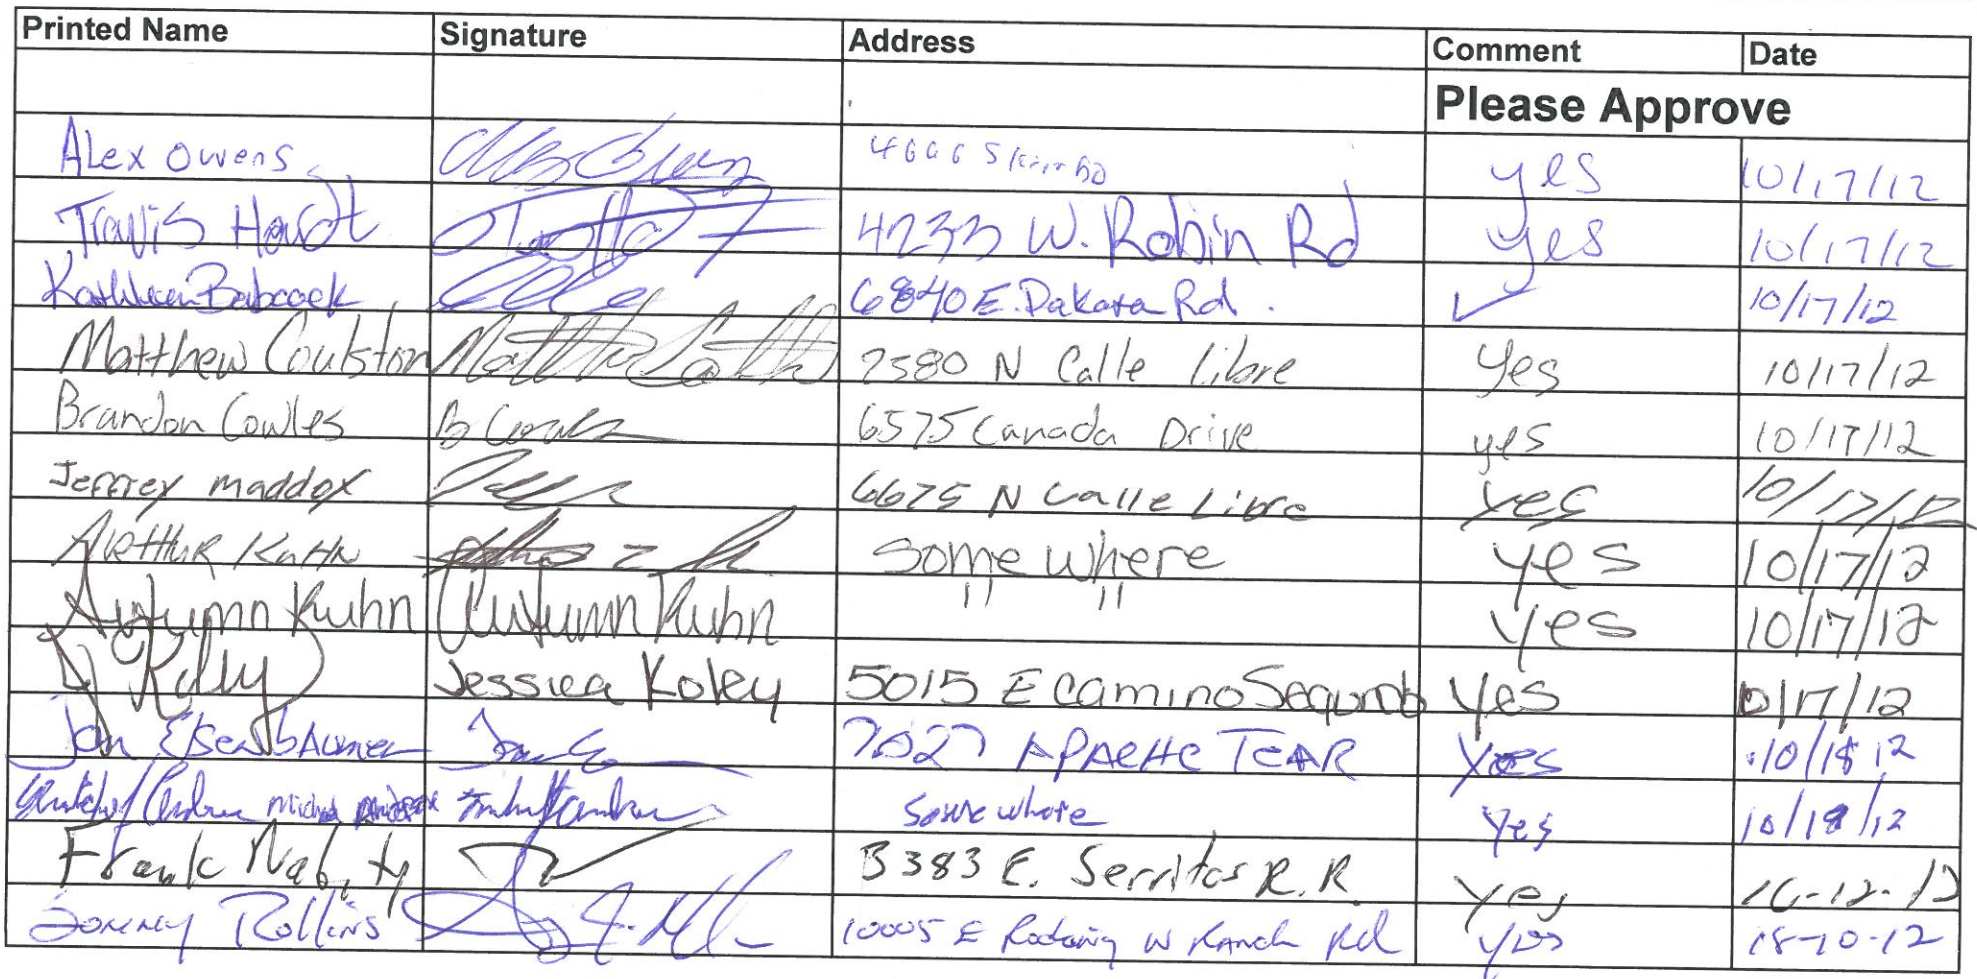 Printed Name Signature Address Comment Date
Please Approve
Alex Owens yes 10/17/12
Travis Hardt 4233 W. Robin Rd yes 10/17/12
Kathleen Babcock 6840 E. Dakota Rd. ✓ 10/17/12
Matthew Coulston 7580 N Calle Libre Yes 10/17/12
Brandon Cowles B Cowles 6575 Canada Drive yes 10/17/12
Jeffrey maddox 6675 N Calle Libre yes 10/17/12
Arthur Kuhn Some where yes 10/17/12
Autumn Kuhn Autumn Kuhn " " yes 10/17/12
J Kolly Jessica Koley 5015 E Camino Segundo Yes 10/17/12
Jon 7027 APACHE TEAR Yes 10/18 12
Some where Yes 10/18/12
Frank Nabity 3383 E. Serritos R.R. Yes
Rollins 10005 E W Ranch Rd yes 18-10-12